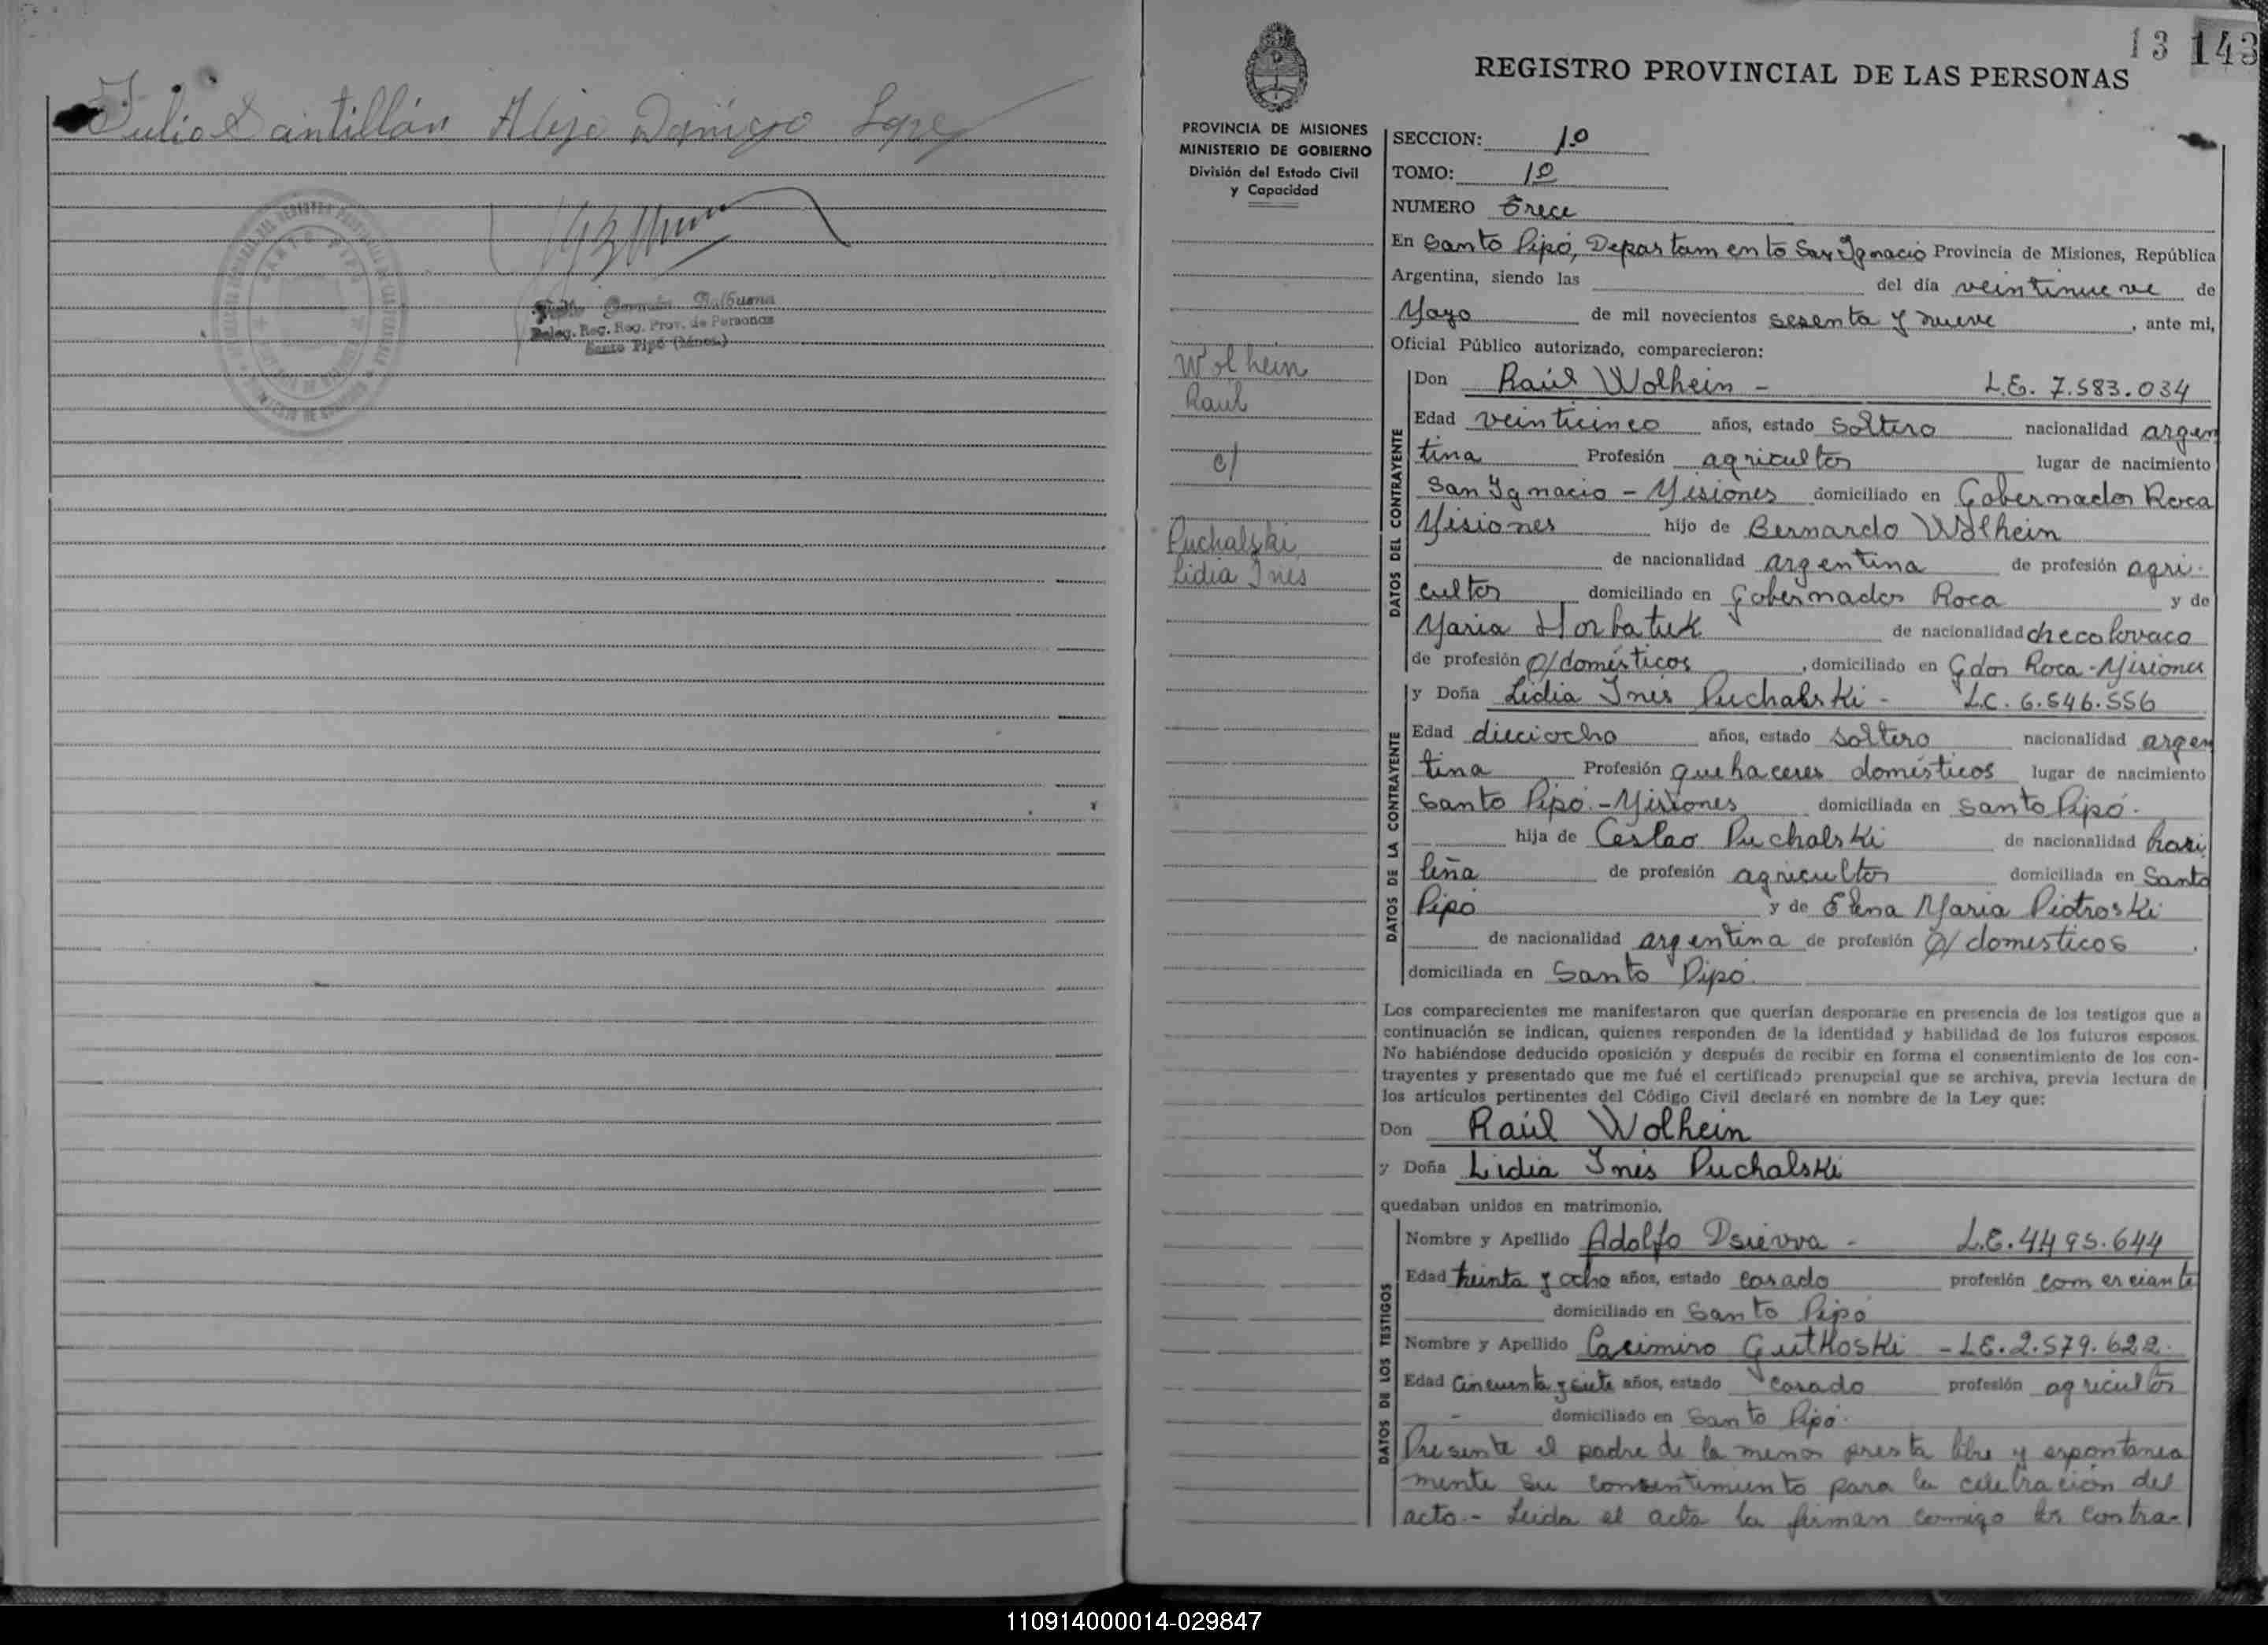 Julio Santillán Alejo Dámigo Lopez
Julio Germán Balbuena
Deleg. Reg. Reg. Prov. de Personas
Santo Pipó (Mnes.)
13 143
REGISTRO PROVINCIAL DE LAS PERSONAS
PROVINCIA DE MISIONES
MINISTERIO DE GOBIERNO
División del Estado Civil
y Capacidad
Wolhein
Raúl
c/
Puchalski
Lidia Ines
SECCION: 1º
TOMO: 1º
NUMERO Trece
En Santo Pipó, Departamento San Ignacio Provincia de Misiones, República
Argentina, siendo las del día veintinueve de
Mayo de mil novecientos sesenta y nueve, ante mi,
Oficial Público autorizado, comparecieron:
DATOS DEL CONTRAYENTE
Don Raúl Wolhein - L.E. 7.583.034
Edad veinticinco años, estado soltero nacionalidad argen
tina Profesión agricultor lugar de nacimiento
San Ignacio - Misiones domiciliado en Gobernador Roca
Misiones hijo de Bernardo Wolhein
de nacionalidad argentina de profesión agri-
cultor domiciliado en Gobernador Roca y de
Maria Horbatuk de nacionalidad checolovaco
de profesión Q/domésticos, domiciliado en Gdor Roca-Misiones
DATOS DE LA CONTRAYENTE
y Doña Lidia Ines Puchalski - L.C. 6.546.556
Edad dieciocho años, estado soltero nacionalidad argen
tina Profesión quehaceres domésticos lugar de nacimiento
Santo Pipó.-Misiones domiciliada en Santo Pipó.
hija de Ceslao Puchalski de nacionalidad brasi
leña de profesión agricultor domiciliada en Santo
Pipó y de Elena Maria Piotroski
de nacionalidad argentina de profesión Q/ domesticos
domiciliada en Santo Pipó.
Los comparecientes me manifestaron que querían desposarse en presencia de los testigos que a
continuación se indican, quienes responden de la identidad y habilidad de los futuros esposos.
No habiéndose deducido oposición y después de recibir en forma el consentimiento de los con-
trayentes y presentado que me fué el certificado prenupcial que se archiva, previa lectura de
los artículos pertinentes del Código Civil declaré en nombre de la Ley que:
Don Raúl Wolhein
y Doña Lidia Inés Puchalski
quedaban unidos en matrimonio.
DATOS DE LOS TESTIGOS
Nombre y Apellido Adolfo Dsievva - L.E. 4495.644
Edad treinta y ocho años, estado casado profesión comerciante
domiciliado en Santo Pipó
Nombre y Apellido Casimiro Gutkoski - L.E. 2.579.622.
Edad Cincuenta y siete años, estado casado profesión agricultor
domiciliado en Santo Pipó.
Presente el padre de la menor presta libre y espontanea
mente su consentimiento para la celebración del
acto.- Leida el acta la firman conmigo los contra-
110914000014-029847